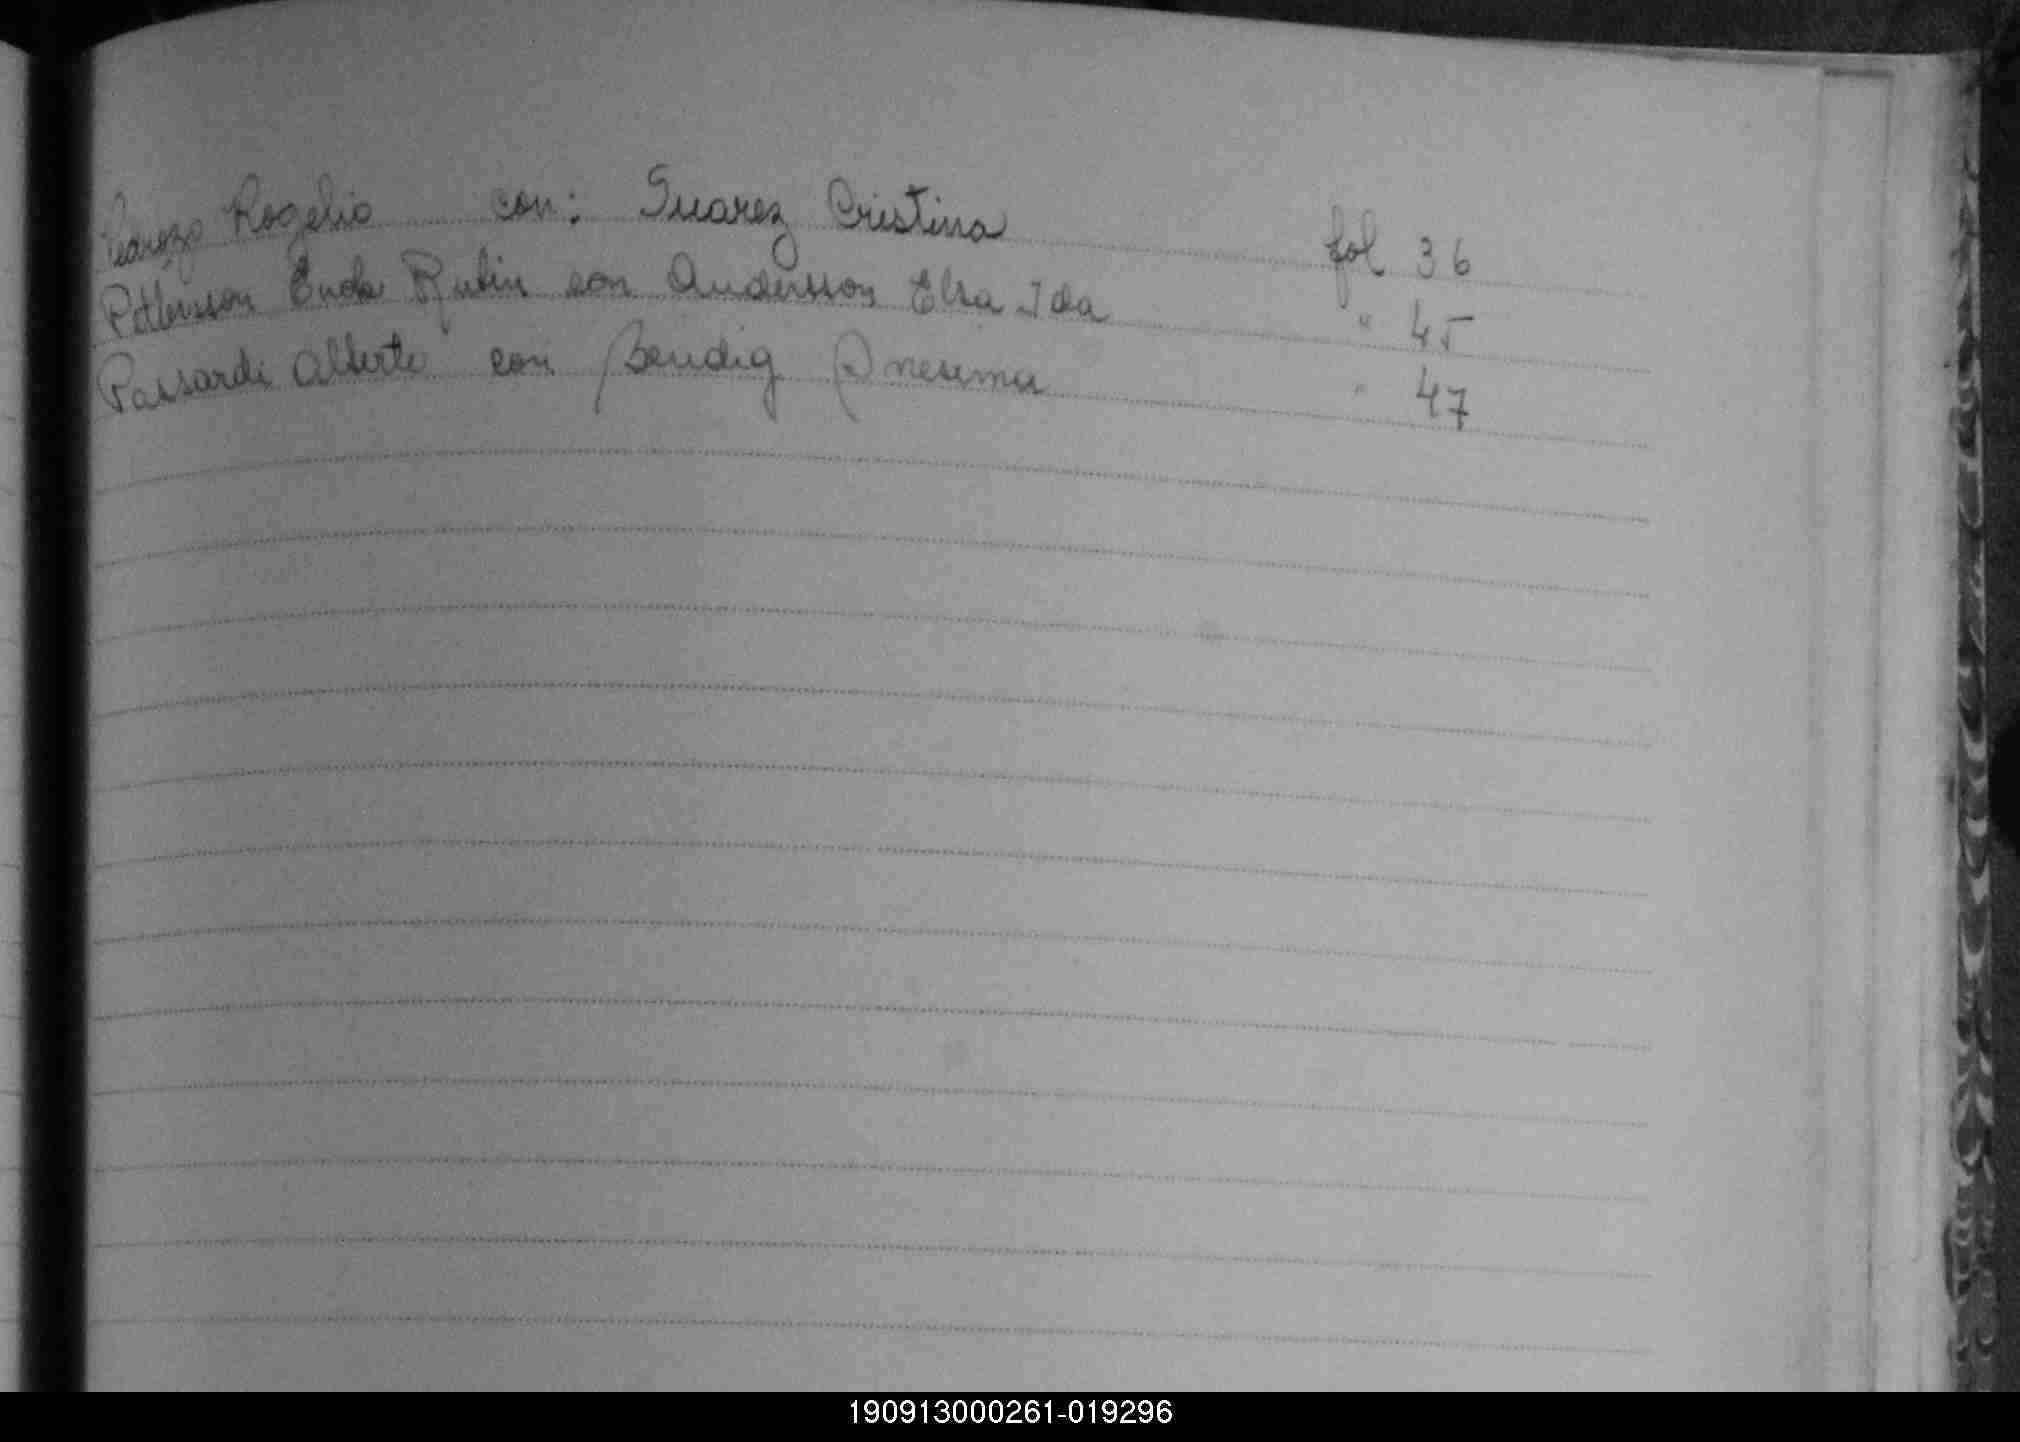 Rogelio con: Suarez Cristina fol 36
Rubin con Andersson Elsa Ida " 45
Passardi Alberto con Bendig Onesima " 47
190913000261-019296